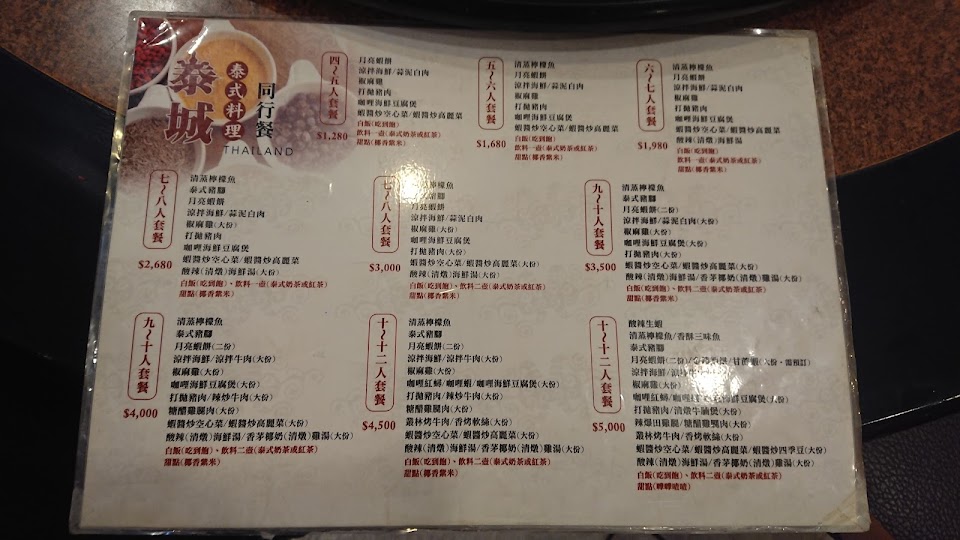 泰城
泰式料理
同行餐
THAILAND
四~五人套餐
$1,280
月亮蝦餅
涼拌海鮮/蒜泥白肉
椒麻雞
打拋豬肉
咖哩海鮮豆腐煲
蝦醬炒空心菜/蝦醬炒高麗菜
白飯(吃到飽)
飲料一壺(泰式奶茶或紅茶)
甜點(椰香紫米)
五~六人套餐
$1,680
清蒸檸檬魚
月亮蝦餅
涼拌海鮮/蒜泥白肉
椒麻雞
打拋豬肉
咖哩海鮮豆腐煲
蝦醬炒空心菜/蝦醬炒高麗菜
白飯(吃到飽)
飲料一壺(泰式奶茶或紅茶)
甜點(椰香紫米)
六~七人套餐
$1,980
清蒸檸檬魚
月亮蝦餅
涼拌海鮮/蒜泥白肉
椒麻雞
打拋豬肉
咖哩海鮮豆腐煲
蝦醬炒空心菜/蝦醬炒高麗菜
酸辣(清燉)海鮮湯
白飯(吃到飽)
飲料一壺(泰式奶茶或紅茶)
甜點(椰香紫米)
七~八人套餐
$2,680
清蒸檸檬魚
泰式豬腳
月亮蝦餅
涼拌海鮮/蒜泥白肉
椒麻雞(大份)
打拋豬肉
咖哩海鮮豆腐煲
蝦醬炒空心菜/蝦醬炒高麗菜
酸辣(清燉)海鮮湯(大份)
白飯(吃到飽)、飲料一壺(泰式奶茶或紅茶)
甜點(椰香紫米)
七~八人套餐
$3,000
清蒸檸檬魚
泰式豬腳
月亮蝦餅
涼拌海鮮/蒜泥白肉
椒麻雞(大份)
咖哩海鮮豆腐煲
打拋豬肉(大份)
蝦醬炒空心菜/蝦醬炒高麗菜(大份)
酸辣(清燉)海鮮湯(大份)
白飯(吃到飽)、飲料二壺(泰式奶茶或紅茶)
甜點(椰香紫米)
九~十人套餐
$3,500
清蒸檸檬魚
泰式豬腳
月亮蝦餅(二份)
涼拌海鮮/蒜泥白肉(大份)
椒麻雞(大份)
打拋豬肉(大份)
咖哩海鮮豆腐煲(大份)
蝦醬炒空心菜/蝦醬炒高麗菜(大份)
酸辣(清燉)海鮮湯/香茅椰奶(清燉)雞湯(大份)
白飯(吃到飽)、飲料二壺(泰式奶茶或紅茶)
甜點(椰香紫米)
九~十人套餐
$4,000
清蒸檸檬魚
泰式豬腳
月亮蝦餅(二份)
涼拌海鮮/涼拌牛肉(大份)
椒麻雞(大份)
咖哩海鮮豆腐煲(大份)
打拋豬肉/辣炒牛肉(大份)
糖醋雞腿肉(大份)
蝦醬炒空心菜/蝦醬炒高麗菜(大份)
酸辣(清燉)海鮮湯/香茅椰奶(清燉)雞湯(大份)
白飯(吃到飽)、飲料二壺(泰式奶茶或紅茶)
甜點(椰香紫米)
十~十二人套餐
$4,500
清蒸檸檬魚
泰式豬腳
月亮蝦餅(二份)
涼拌海鮮/涼拌牛肉(大份)
椒麻雞(大份)
咖哩紅蟳/咖哩蝦/咖哩海鮮豆腐煲(大份)
打拋豬肉/辣炒牛肉(大份)
糖醋雞腿肉(大份)
叢林烤牛肉/香烤軟絲(大份)
蝦醬炒空心菜/蝦醬炒高麗菜(大份)
酸辣(清燉)海鮮湯/香茅椰奶(清燉)雞湯(大份)
白飯(吃到飽)、飲料二壺(泰式奶茶或紅茶)
甜點(椰香紫米)
十~十二人套餐
$5,000
酸辣生蝦
清蒸檸檬魚/香酥三味魚
泰式豬腳
月亮蝦餅(二份)/甘蔗蝦(大份,需預訂)
涼拌海鮮/涼拌牛肉(大份)
椒麻雞(大份)
咖哩紅蟳/咖哩海鮮豆腐煲(大份)
打拋豬肉/清燉牛腩煲(大份)
辣爆田雞腿/糖醋雞腿肉(大份)
叢林烤牛肉/香烤軟絲(大份)
蝦醬炒空心菜/蝦醬炒高麗菜/蝦醬炒四季豆(大份)
酸辣(清燉)海鮮湯/香茅椰奶(清燉)雞湯(大份)
白飯(吃到飽)、飲料二壺(泰式奶茶或紅茶)
甜點(嗶嗶喳喳)